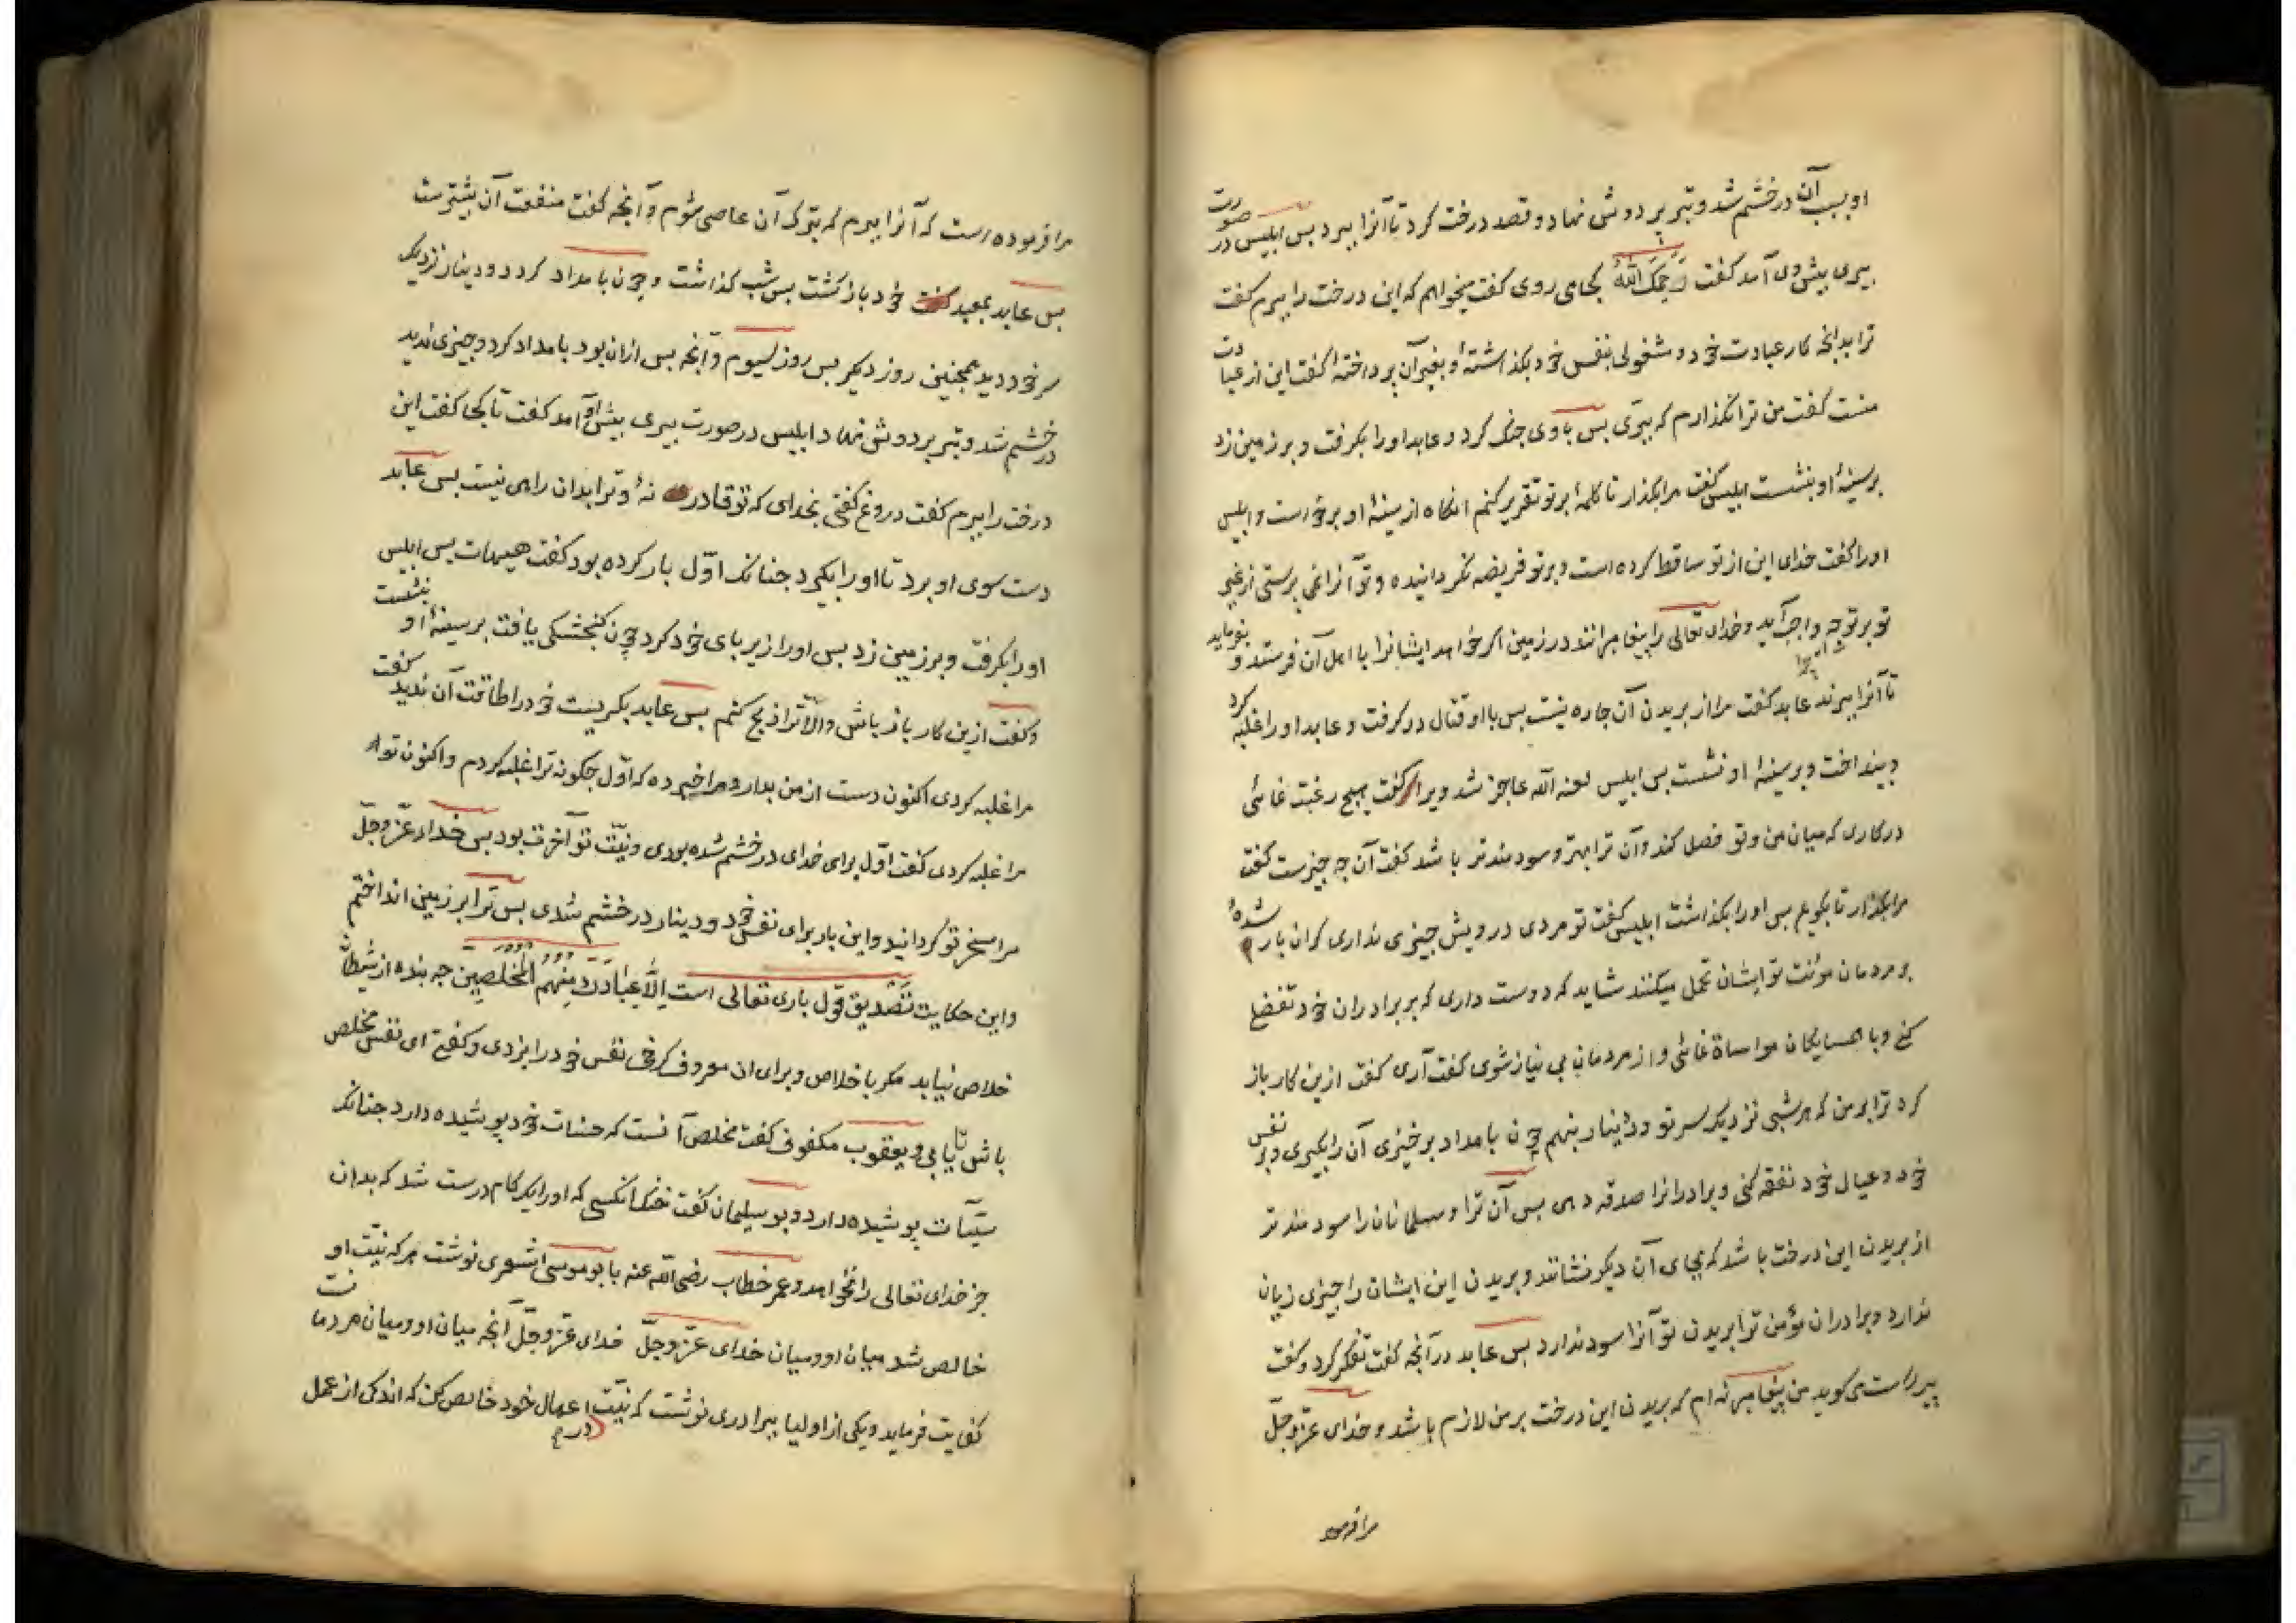 او بسبب آن درخشم شد و تبر بر دوش نهاد و قصد درخت کرد تا آنرا ببرد بس ابلیس در صورت
پیری بیش وی آمد کفت رَحِمَکَ اللّهُ کجا می روی کفت میخواهم که این درخت را ببرم کفت
ترا بدانجه کار عبادت خود و مشغولی بنفس خود بکذاشتهٔ و بغیر آن برداختهٔ کفت این از عبادت
منست کفت من ترا نکذارم که ببری بس با وی جنک کرد و عابد او را بکرفت و بر زمین زد
بر سینهٔ او بنشست ابلیس کفت مرا بکذار تا کلمهٔ بر تو تقریر کنم انکاه از سینهٔ او برخاست و ابلیس
او را کفت خدای این از تو ساقط کرده است و بر تو فریضه نکردانیده و تو آنرا نمی برستی از غیر
تو بر تو جه واجب آید و خدای تعالی را پیغامبرانند در زمین اکر خواهد ایشانرا با اهل آن فرستد و بفرماید
تا آنرا ببرند عابد کفت مرا از بریدن آن جاره نیست بس با او قتال درکرفت و عابد او را غلبه کرد
و بینداخت و بر سینهٔ او نشست بس ابلیس لعنه الله عاجز شد ویرا کفت هیچ رغبت نمائی
در کاری که میان من و تو فصل کند و آن ترا بهتر و سودمندتر باشد کفت آن جه جیزست کفت
مرا بکذار تا بکویم بس او را بکذاشت ابلیس کفت تو مردی درویش جیزی نداری کران بار شدهٔ
بر مردمان مؤنت تو ایشان تحمل میکنند شاید که دوست داری که بر برادران خود تفضل
کنی و با همسایکان مواساة نمائی و از مردمان بی نیاز شوی کفت آری کفت ازین کار باز
کرد ترا بر من که هر شبی نزدیک سر تو دو دینار بنهم چون بامداد برخیزی آن را بکیری و بر نفس
خود و عیال خود نفقه کنی و برادرانرا صدقه دهی بس آن ترا و مسلمانان را سودمندتر
از بریدن این درخت باشد که بجای آن دیکر نشانند و بریدن این ایشان را جیزی زیان
ندارد و برادران مؤمن ترا بریدن تو آنرا سود ندارد بس عابد در آنجه کفت تفکر کرد و کفت
پیر راست می کوید من پیغامبر نه ام که بریدن این درخت بر من لازم باشد و خدای عزّوجلّ
مرا فرموده
مرا فرموده است که آنرا ببرم که بترک آن عاصی شوم و آنجه کفت منفعت آن بیشترست
بس عابد بمعبد خود بازکشت بس شب کذاشت و چون بامداد کرد دو دینار نزدیک
سر خود دید همجنین روز دیکر بس روز سیوم و آنجه بس ازان بود بامداد کرد و جیزی ندید
درخشم شد و تبر بر دوش نهاد ابلیس در صورت پیری بیش او آمد کفت تا کجا کفت این
درخت را ببرم کفت دروغ کفتی بخدای که تو قادر نهٔ و ترا بدان راهی نیست بس عابد
دست سوی او برد تا او را بکیرد جنانک اوّل بار کرده بود کفت هیهات بس ابلیس
او را بکرفت و بر زمین زد بس او را زیر بای خود کرد چون کنجشکی یافت بر سینهٔ او بنشست
و کفت ازین کار باز باش والّا ترا ذبح کنم بس عابد بکریست خود را طاقت آن ندید کفت
مرا غلبه کردی اکنون دست از من بدار و مرا خبر ده که اوّل جکونه ترا غلبه کردم و اکنون تو
مرا غلبه کردی کفت اوّل برای خدای درخشم شده بودی و نیّت تو آخرت بود بس خدای عزّوجلّ
مرا مسخر تو کردانید و این بار برای نفس خود و دینار درخشم شدی بس ترا بر زمین انداختم
و این حکایت تصدیق قول باری تعالی است اِلّا عِبَادَکَ مِنْهُمُ الْمُخْلَصِینَ جه بنده از شیطان
خلاص نیابد مکر باخلاص و برای ان معروف کرخی نفس خود را بزدی و کفتی ای نفس مخلص
باش تا خلاص یابی و یعقوب مکفوف کفت مخلص آنست که حسنات خود پوشیده دارد جنانک
سیّآت پوشیده دارد و بو سلیمان کفت خنک انکسی که او را یک کام درست شد که بدان
جز خدای تعالی را نخواهد و عمر خطاب رضی الله عنه بابو موسی اشعری نوشت هر که نیّت او
خالص شد میان او و میان خدای عزّوجلّ خدای عزّوجلّ آنجه میان او و میان مردمانست
کفایت فرماید و یکی از اولیا ببرادری نوشت که نیّت در اعمال خود خالص کن که اندکی از عمل